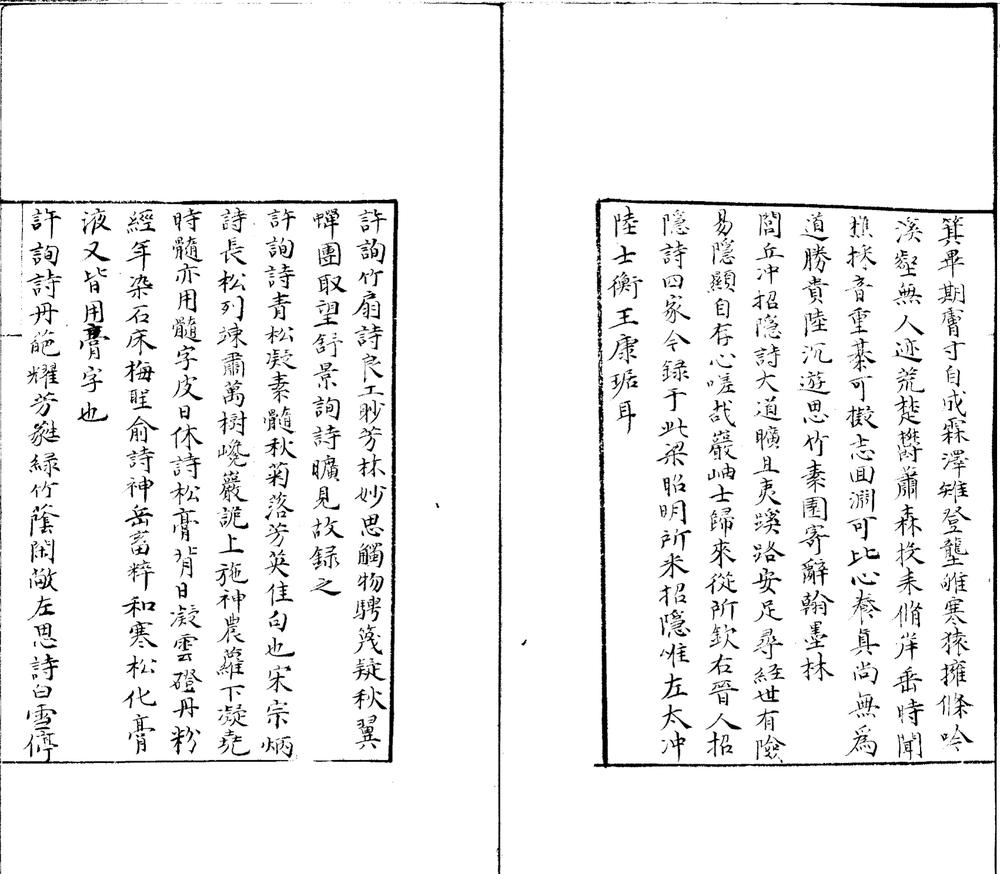 箕畢期膚寸自成霖澤雉登壟雊寒猿擁條吟
溪壑無人迹荒楚鬱蕭森投耒循岸垂時聞
樵採音重基可擬志迴淵可比心養真尚無為
道勝貴陸沉遊思竹素園寄辭翰墨林
閭丘冲招隐詩大道曠且夷蹊路安足尋經世有險
易隱顯自存心嗟哉巖岫士歸來從所欽右晉人招
隱詩四家今録于此梁昭明所采招隱惟左太冲
陸士衡王康琚耳
許詢竹扇詩良工眇芳林妙思觸物騁篾疑秋翼
蟬團取望舒景詢詩曠見故録之
許詢詩青松凝素髓秋菊落芳英佳句也宋宗炳
詩長松列竦肅萬樹巉巖詭上施神農蘿下凝堯
時髓亦用髓字皮日休詩松膏背日凝雲磴丹粉
經年染石床梅聖俞詩神岳畜粹和寒松化膏
液又皆用膏字也
許詢詩丹葩耀芳蕤緑竹蔭閑敞左思詩白雪停